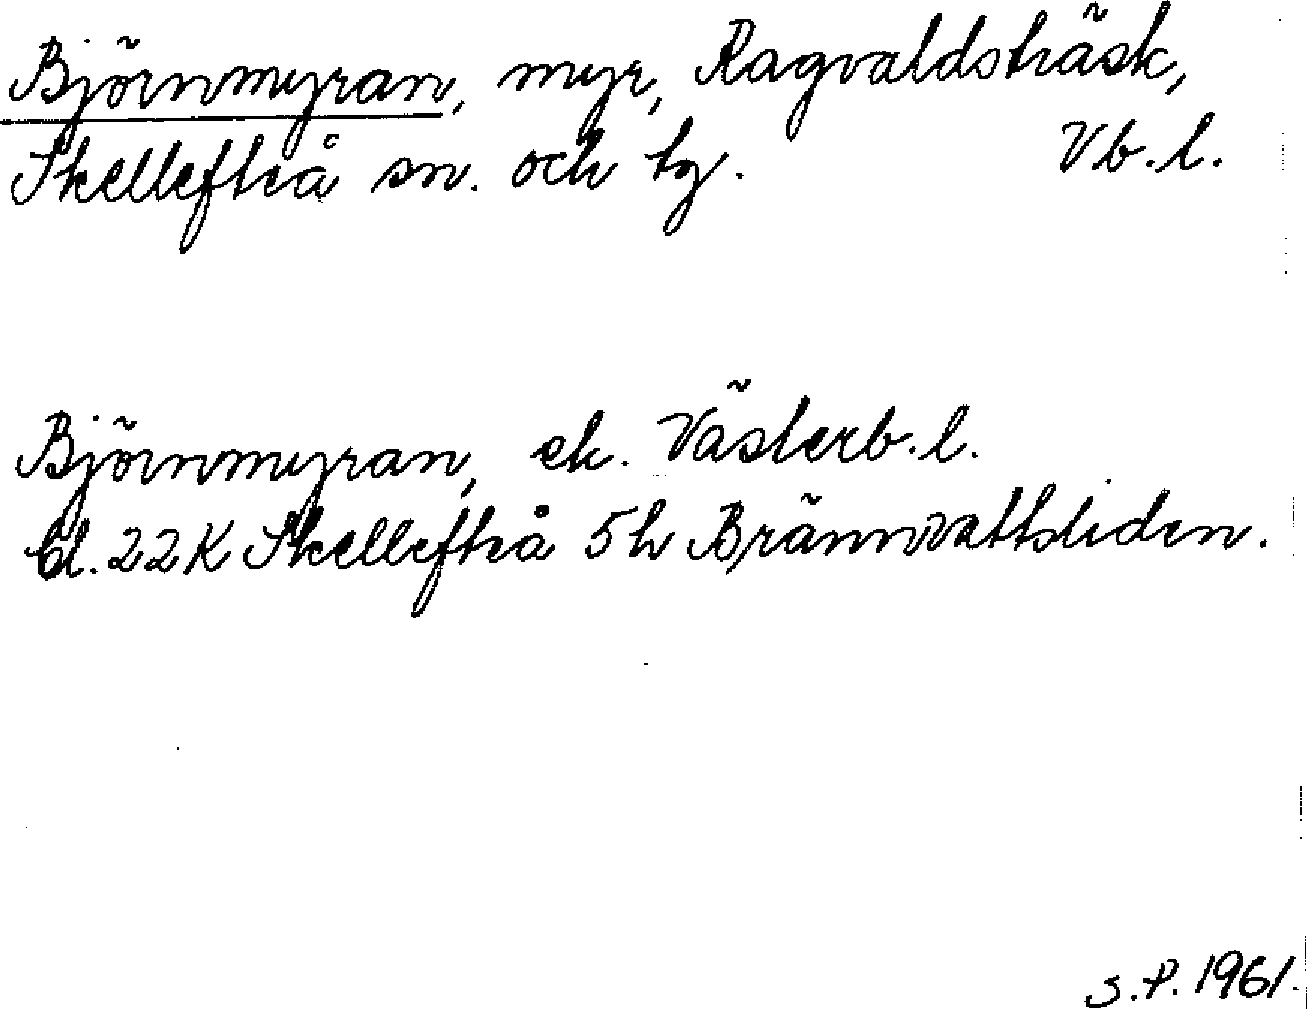 Björnmyran, myr, Ragvaldsträsk,
Skellefteå sn. och tg. Vb.l.
Björnmyran, ek. Västerb.l.
bl. 22K Skellefteå 5h Brännvattsliden.
S.P. 1961.